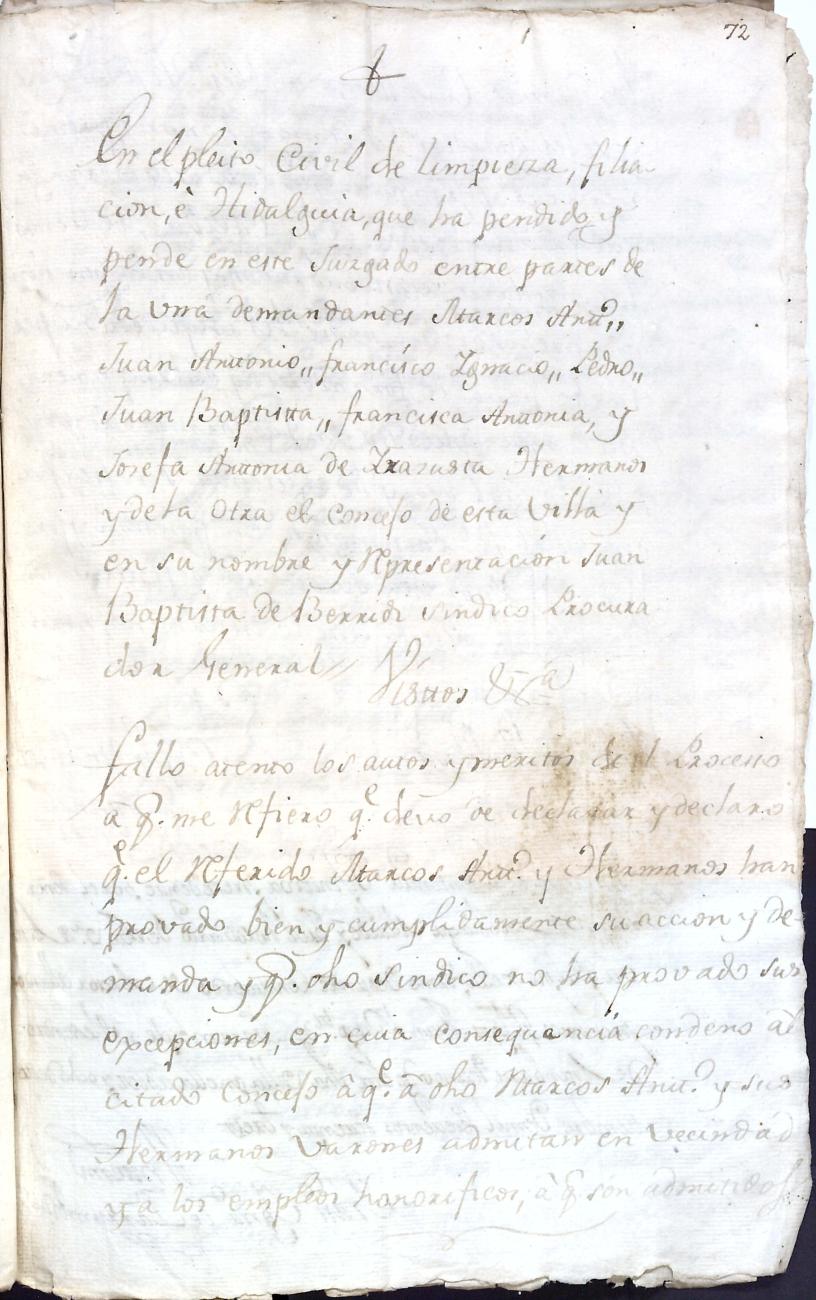 72
En el pleito Civil de limpieza, filia-
cion, è Hidalguia, que ha pendido, y
pende en este Juzgado entre partes de
la vna demandantes Marcos Antt.º,,
Juan Anttonio,, francisco Ignacio,, Pedro,,
Juan Baptistta,, francisca Anttonia, y
Josefa Anttonia de Irazusta Hermanos
y dela otra el Concejo de esta Villa y
en su nombre y Representacion Juan
Baptista de Berridi sindico Procura-
dor General // Visttos &ª
fallo atento los autos y meritos de el Processo
â q. me Refiero q.e devo de declarar y declaro
q.e el Referido Marcos Antt.º y Hermanos han
provado bien y cumplidamente su accion y de-
manda y q. dho sindico no ha provado sus
excepciones, en cuia consequencia condeno al
citado Concejo â q.e â dho Marcos Antt.º y sus
Hermanos Varones admitan en Vecindad
y â los empleos honorificos, â q. son admitidos